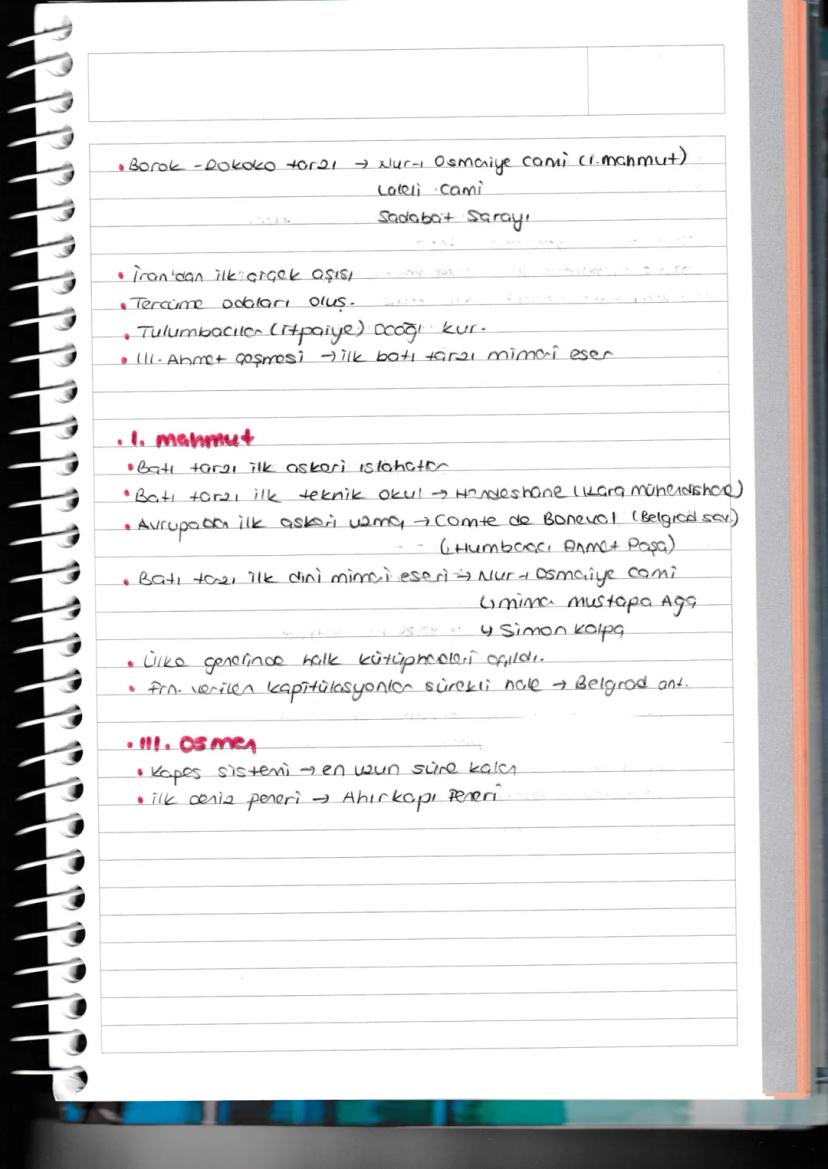 • Barok - Rokoko tarzı → Nur-ı Osmaniye Cami (I. Mahmut)
Laleli Cami
Sadabat Sarayı
• İran'dan ilk çiçek aşısı
• Tercüme odaları oluş.
• Tulumbacılar (itfaiye) Ocağı kur.
• III. Ahmet Çeşmesi → ilk batı tarzı mimari eser
• I. Mahmut
• Batı tarzı ilk askeri ıslahatlar
• Batı tarzı ilk teknik okul → Hendeshane (Kara mühendishane)
• Avrupadan ilk askeri uzman → Comte de Boneval (Belgrad sav.)
(Humbaracı Ahmet Paşa)
• Batı tarzı ilk dini mimari eseri → Nur-ı Osmaniye Cami
↳ mimar Mustafa Ağa
↳ Simon Kalfa
• Ülke genelinde halk kütüphaneleri açıldı.
• Frn. verilen kapitülasyonlar sürekli hale → Belgrad ant.
• III. Osman
• Kafes sistemi → en uzun süre kalan
• ilk deniz feneri → Ahırkapı Feneri